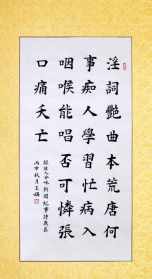 淫詞艷曲本荒唐何
事癡人學習忙病入
咽喉能唱否可憐張
口痛夭亡